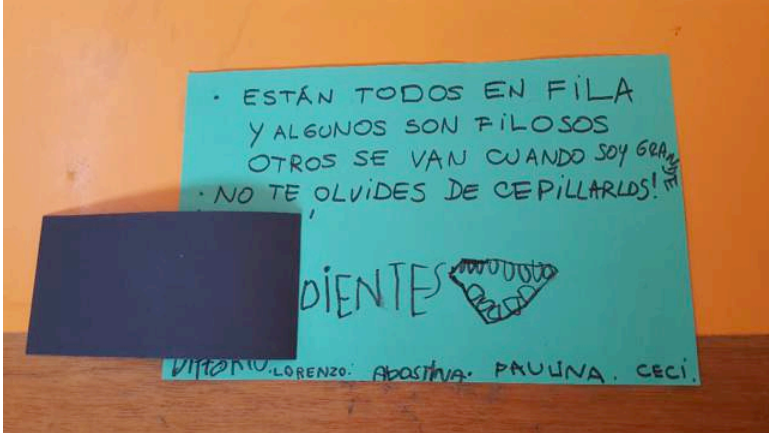 · ESTÁN TODOS EN FILA
Y ALGUNOS SON FILOSOS
OTROS SE VAN CUANDO SOY GRANDE
· NO TE OLVIDES DE CEPILLARLOS!
DIENTES
LORENZO. PAULINA. CECI.